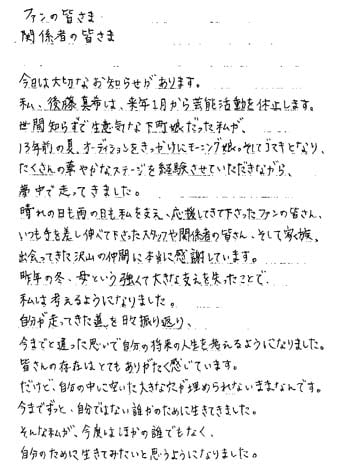 ファンの皆さま
関係者の皆さま
今日は大切なお知らせがあります。
私、後藤真希は、来年1月から芸能活動を休止します。
世間知らずで生意気な下町娘だった私が、
13年前の夏、オーディションをきっかけにモーニング娘。そしてソロとなり、
たくさんの華やかなステージを経験させていただきながら、
夢中で走ってきました。
晴れの日も雨の日も私を支え、応援してきて下さったファンの皆さん、
いつも手を差し伸べて下さったスタッフや関係者の皆さん、そして家族、
出会ってきた沢山の仲間に本当に感謝しています。
昨年の冬、母という強くて大きな支えを失ったことで、
私は考えるようになりました。
自分が走ってきた道を日々振り返り、
今までと違った思いで自分の将来の人生を考えるようになりました。
皆さんの存在はとてもありがたく感じています。
だけど、自分の中に空いた大きな穴が埋められないままなんです。
今までずっと、自分ではない誰かのために生きてきました。
そんな私が、今度はほかの誰でもなく、
自分のために生きてみたいと思うようになりました。